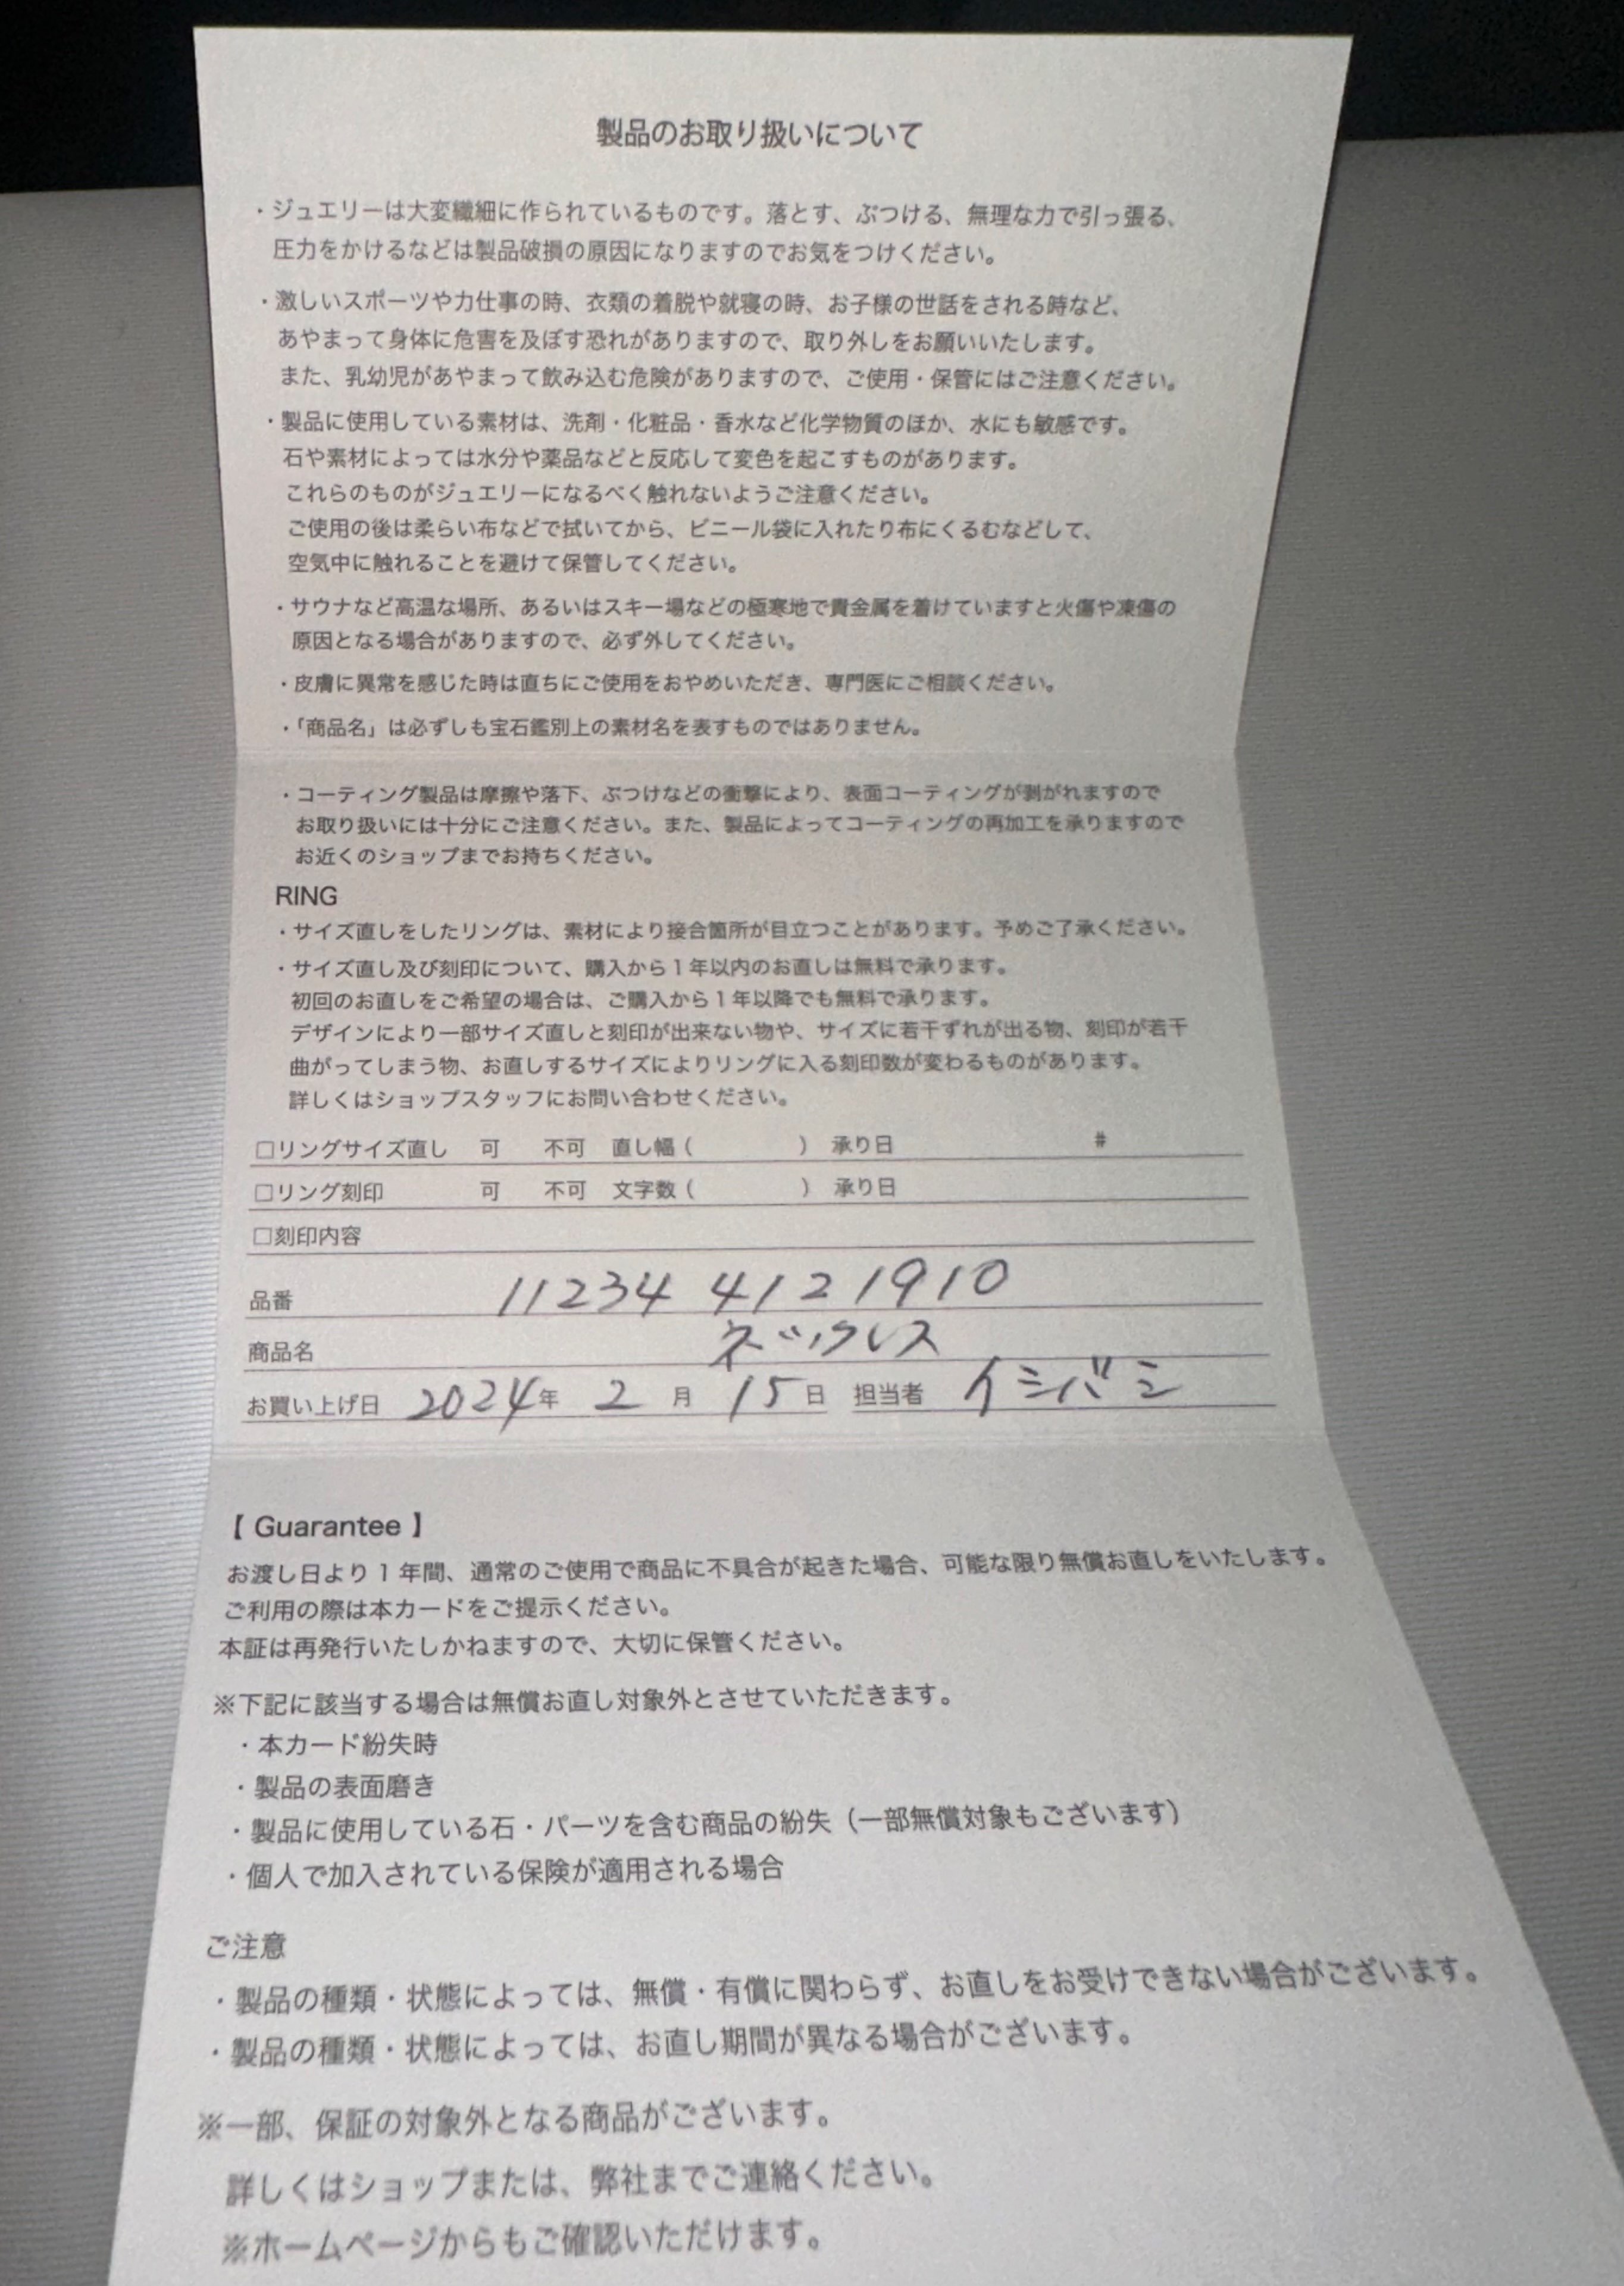 製品のお取り扱いについて
・ジュエリーは大変繊細に作られているものです。落とす、ぶつける、無理な力で引っ張る、
圧力をかけるなどは製品破損の原因になりますのでお気をつけください。
・激しいスポーツや力仕事の時、衣類の着脱や就寝の時、お子様の世話をされる時など、
あやまって身体に危害を及ぼす恐れがありますので、取り外しをお願いいたします。
また、乳幼児があやまって飲み込む危険がありますので、ご使用・保管にはご注意ください。
・製品に使用している素材は、洗剤・化粧品・香水など化学物質のほか、水にも敏感です。
石や素材によっては水分や薬品などと反応して変色を起こすものがあります。
これらのものがジュエリーになるべく触れないようご注意ください。
ご使用の後は柔らい布などで拭いてから、ビニール袋に入れたり布にくるむなどして、
空気中に触れることを避けて保管してください。
・サウナなど高温な場所、あるいはスキー場などの極寒地で貴金属を着けていますと火傷や凍傷の
原因となる場合がありますので、必ず外してください。
・皮膚に異常を感じた時は直ちにご使用をおやめいただき、専門医にご相談ください。
・「商品名」は必ずしも宝石鑑別上の素材名を表すものではありません。
・コーティング製品は摩擦や落下、ぶつけなどの衝撃により、表面コーティングが剥がれますので
お取り扱いには十分にご注意ください。また、製品によってコーティングの再加工を承りますので
お近くのショップまでお持ちください。
RING
・サイズ直しをしたリングは、素材により接合箇所が目立つことがあります。予めご了承ください。
・サイズ直し及び刻印について、購入から1年以内のお直しは無料で承ります。
初回のお直しをご希望の場合は、ご購入から1年以降でも無料で承ります。
デザインにより一部サイズ直しと刻印が出来ない物や、サイズに若干ずれが出る物、刻印が若干
曲がってしまう物、お直しするサイズによりリングに入る刻印数が変わるものがあります。
詳しくはショップスタッフにお問い合わせください。
□リングサイズ直し 可 不可 直し幅( ) 承り日 #
□リング刻印 可 不可 文字数( ) 承り日
□刻印内容
品番 11234 4121910
商品名 ネックレス
お買い上げ日 2024年 2月 15日 担当者 イシバシ
【 Guarantee 】
お渡し日より1年間、通常のご使用で商品に不具合が起きた場合、可能な限り無償お直しをいたします。
ご利用の際は本カードをご提示ください。
本証は再発行いたしかねますので、大切に保管ください。
※下記に該当する場合は無償お直し対象外とさせていただきます。
・本カード紛失時
・製品の表面磨き
・製品に使用している石・パーツを含む商品の紛失（一部無償対象もございます）
・個人で加入されている保険が適用される場合
ご注意
・製品の種類・状態によっては、無償・有償に関わらず、お直しをお受けできない場合がございます。
・製品の種類・状態によっては、お直し期間が異なる場合がございます。
※一部、保証の対象外となる商品がございます。
詳しくはショップまたは、弊社までご連絡ください。
※ホームページからもご確認いただけます。